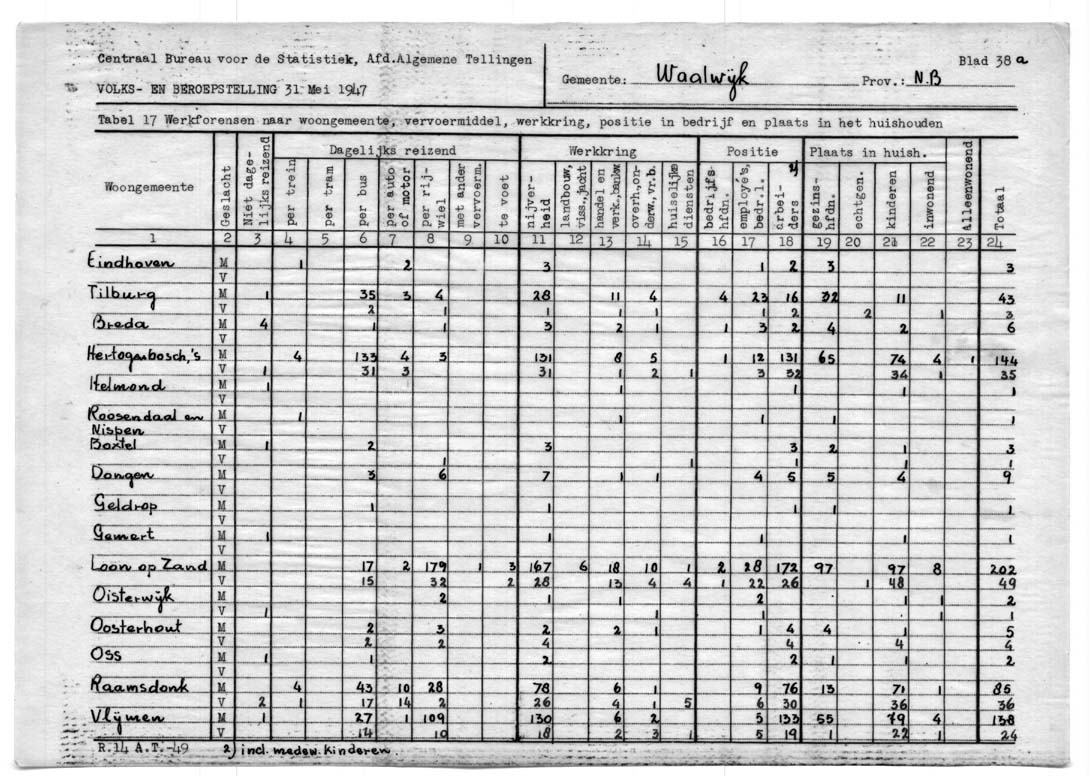 Centraal Bureau voor de Statistiek, Afd.Algemene Tellingen
VOLKS- EN BEROEPSTELLING 31 Mei 1947
Gemeente: Waalwijk Prov.: N.B
Blad 38a
Tabel 17 Werkforensen naar woongemeente, vervoermiddel, werkkring, positie in bedrijf en plaats in het huishouden
Woongemeente Geslacht Niet dagelijks reizend Dagelijks reizend Werkkring Positie 2) Plaats in huish. Alleenwonend Totaal
per trein per tram per bus per auto of motor per rijwiel met ander vervoerm. te voet nijverheid landbouw, viss., jacht handel en verk., bankw. overh., onderw., vr.b. huiselijke diensten bedrijfshfdn. employe's, bedrl. arbeiders gezinshfdn. echtgen. kinderen inwonend
1 2 3 4 5 6 7 8 9 10 11 12 13 14 15 16 17 18 19 20 21 22 23 24
Eindhoven M 1 2 3 1 2 3 3
V
Tilburg M 1 35 3 4 28 11 4 4 23 16 32 11 43
V 2 1 1 1 1 1 2 2 1 3
Breda M 4 1 1 3 2 1 1 3 2 4 2 6
V
Hertogenbosch,'s M 4 133 4 3 131 8 5 1 12 131 65 74 4 1 144
V 1 31 3 31 1 2 1 3 32 34 1 35
Helmond M 1 1 1 1 1
V
Roosendaal en M 1 1 1 1 1
Nispen V
Boxtel M 1 2 3 3 2 1 3
V 1 1 1 1 1
Dongen M 3 6 7 1 1 4 5 5 4 9
V
Geldrop M 1 1 1 1 1
V
Gemert M 1 1 1 1 1
V
Loon op Zand M 17 2 179 1 3 167 6 18 10 1 2 28 172 97 97 8 202
V 15 32 2 28 13 4 4 1 22 26 1 48 49
Oisterwijk M 2 1 1 2 1 1 2
V 1 1 1 1 1
Oosterhout M 2 3 2 2 1 1 4 4 1 5
V 2 2 4 4 4 4
Oss M 1 1 2 2 1 1 2
V
Raamsdonk M 4 43 10 28 78 6 1 9 76 13 71 1 85
V 2 1 17 14 2 26 4 1 5 6 30 36 36
Vlijmen M 1 27 1 109 130 6 2 5 133 55 79 4 138
V 14 10 18 2 3 1 5 19 1 22 1 24
R.14 A.T.-49 2) incl. medew. kinderen.